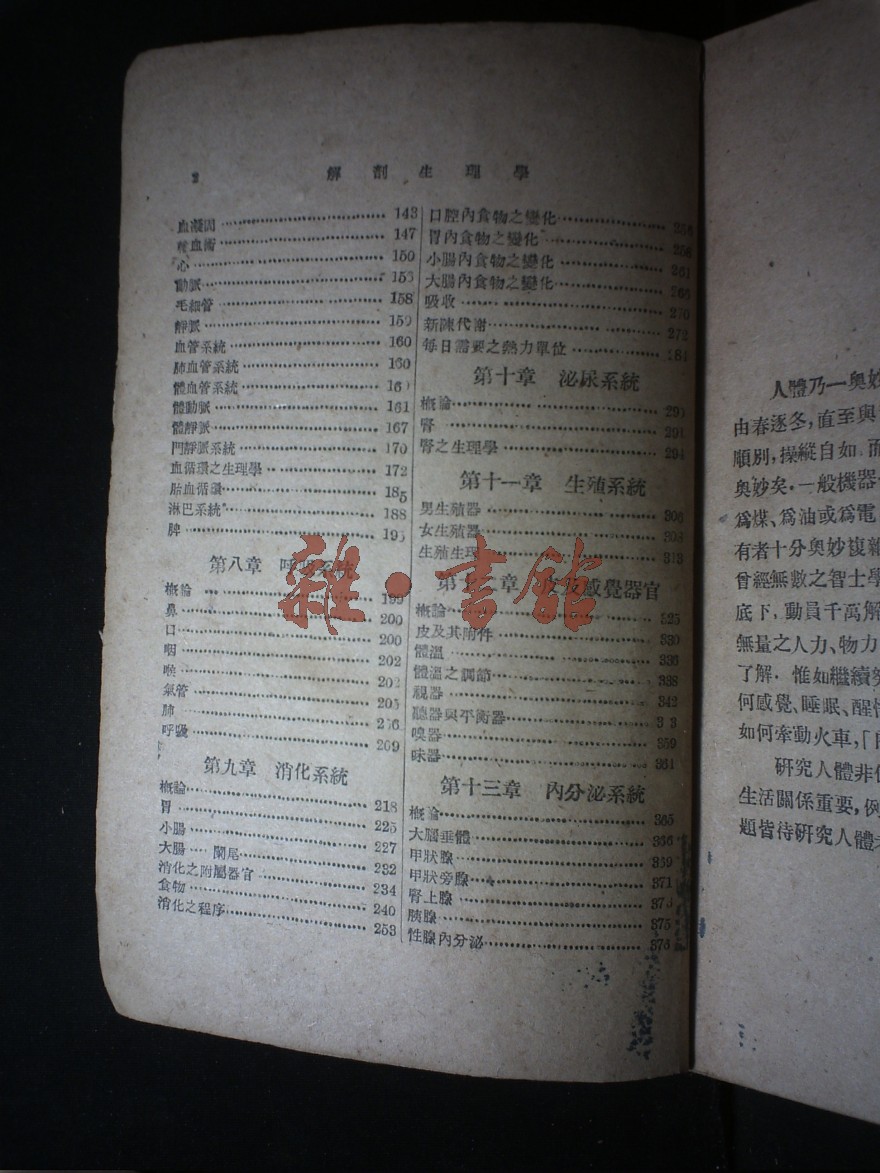 2 解剖生理學
血凝固 143
血術 147
心 150
動脈 153
毛細管 158
靜脈 159
血管系統 160
肺血管系統 160
體血管系統
體動脈 161
體靜脈 167
門靜脈系統 170
血循環之生理學 172
胎血循環 185
淋巴系統 188
脾
第八章 呼吸系統
概論 199
鼻 200
口 200
咽 202
喉 202
氣管 205
肺
呼吸 209
第九章 消化系統
概論 218
胃 225
小腸 227
大腸 闌尾 232
消化之附屬器官 234
食物 240
消化之程序 253
口腔內食物之變化
胃內食物之變化
小腸內食物之變化 261
大腸內食物之變化
吸收 270
新陳代謝 272
每日需要之熱力單位
第十章 泌尿系統
概論
腎 291
腎之生理學 294
第十一章 生殖系統
男生殖器 306
女生殖器 308
生殖生理 313
第十二章 皮及感覺器官
概論 325
皮及其附件 330
體溫 336
體溫之調節 338
視器 342
聽器與平衡器
嗅器 359
味器 361
第十三章 內分泌系統
概論 365
大腦垂體 366
甲狀腺 369
甲狀旁腺 371
腎上腺
胰腺 375
性腺內分泌 376
雜·書館
人體乃一奧妙
由春逐冬，直至與
順別，操縱自如．而
奧妙矣．一般機器
爲煤、爲油或爲電
有者十分奧妙複雜
曾經無數之智士學
底下，動員千萬解
無量之人力、物力
了解．惟如繼續
何感覺、睡眠、醒
如何牽動火車，「
研究人體非
生活關係重要，例
題皆待研究人體